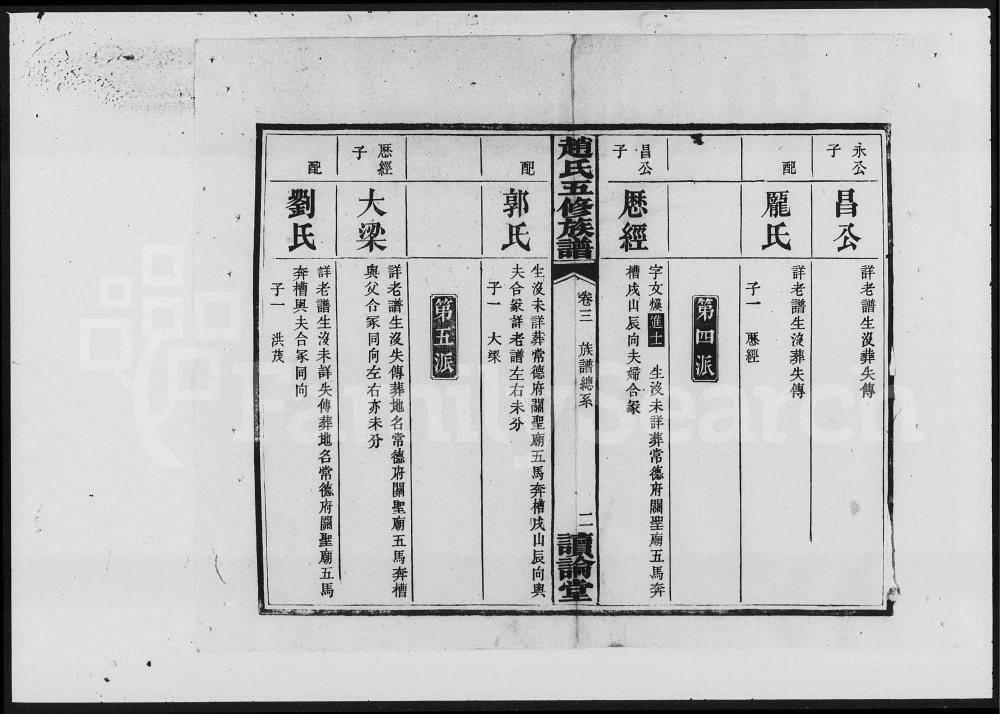 永公子
昌公
詳老譜生沒葬失傳
配
龎氏
詳老譜生沒葬失傳
子一 厯經
第四派
昌公子
厯經
字文煥進士 生沒未詳葬常德府關聖廟五馬奔
槽戌山辰向夫婦合冢
趙氏五修族譜
卷三 族譜總系
二
讀論堂
配
郭氏
生沒未詳葬常德府關聖廟五馬奔槽戌山辰向與
夫合冢詳老譜左右未分
子一 大梁
第五派
厯經子
大梁
詳老譜生沒失傳葬地名常德府關聖廟五馬奔槽
與父合冢同向左右亦未分
配
劉氏
詳老譜生沒未詳失傳葬地名常德府關聖廟五馬
奔槽與夫合冢同向
子一 洪茂
FamilySearch